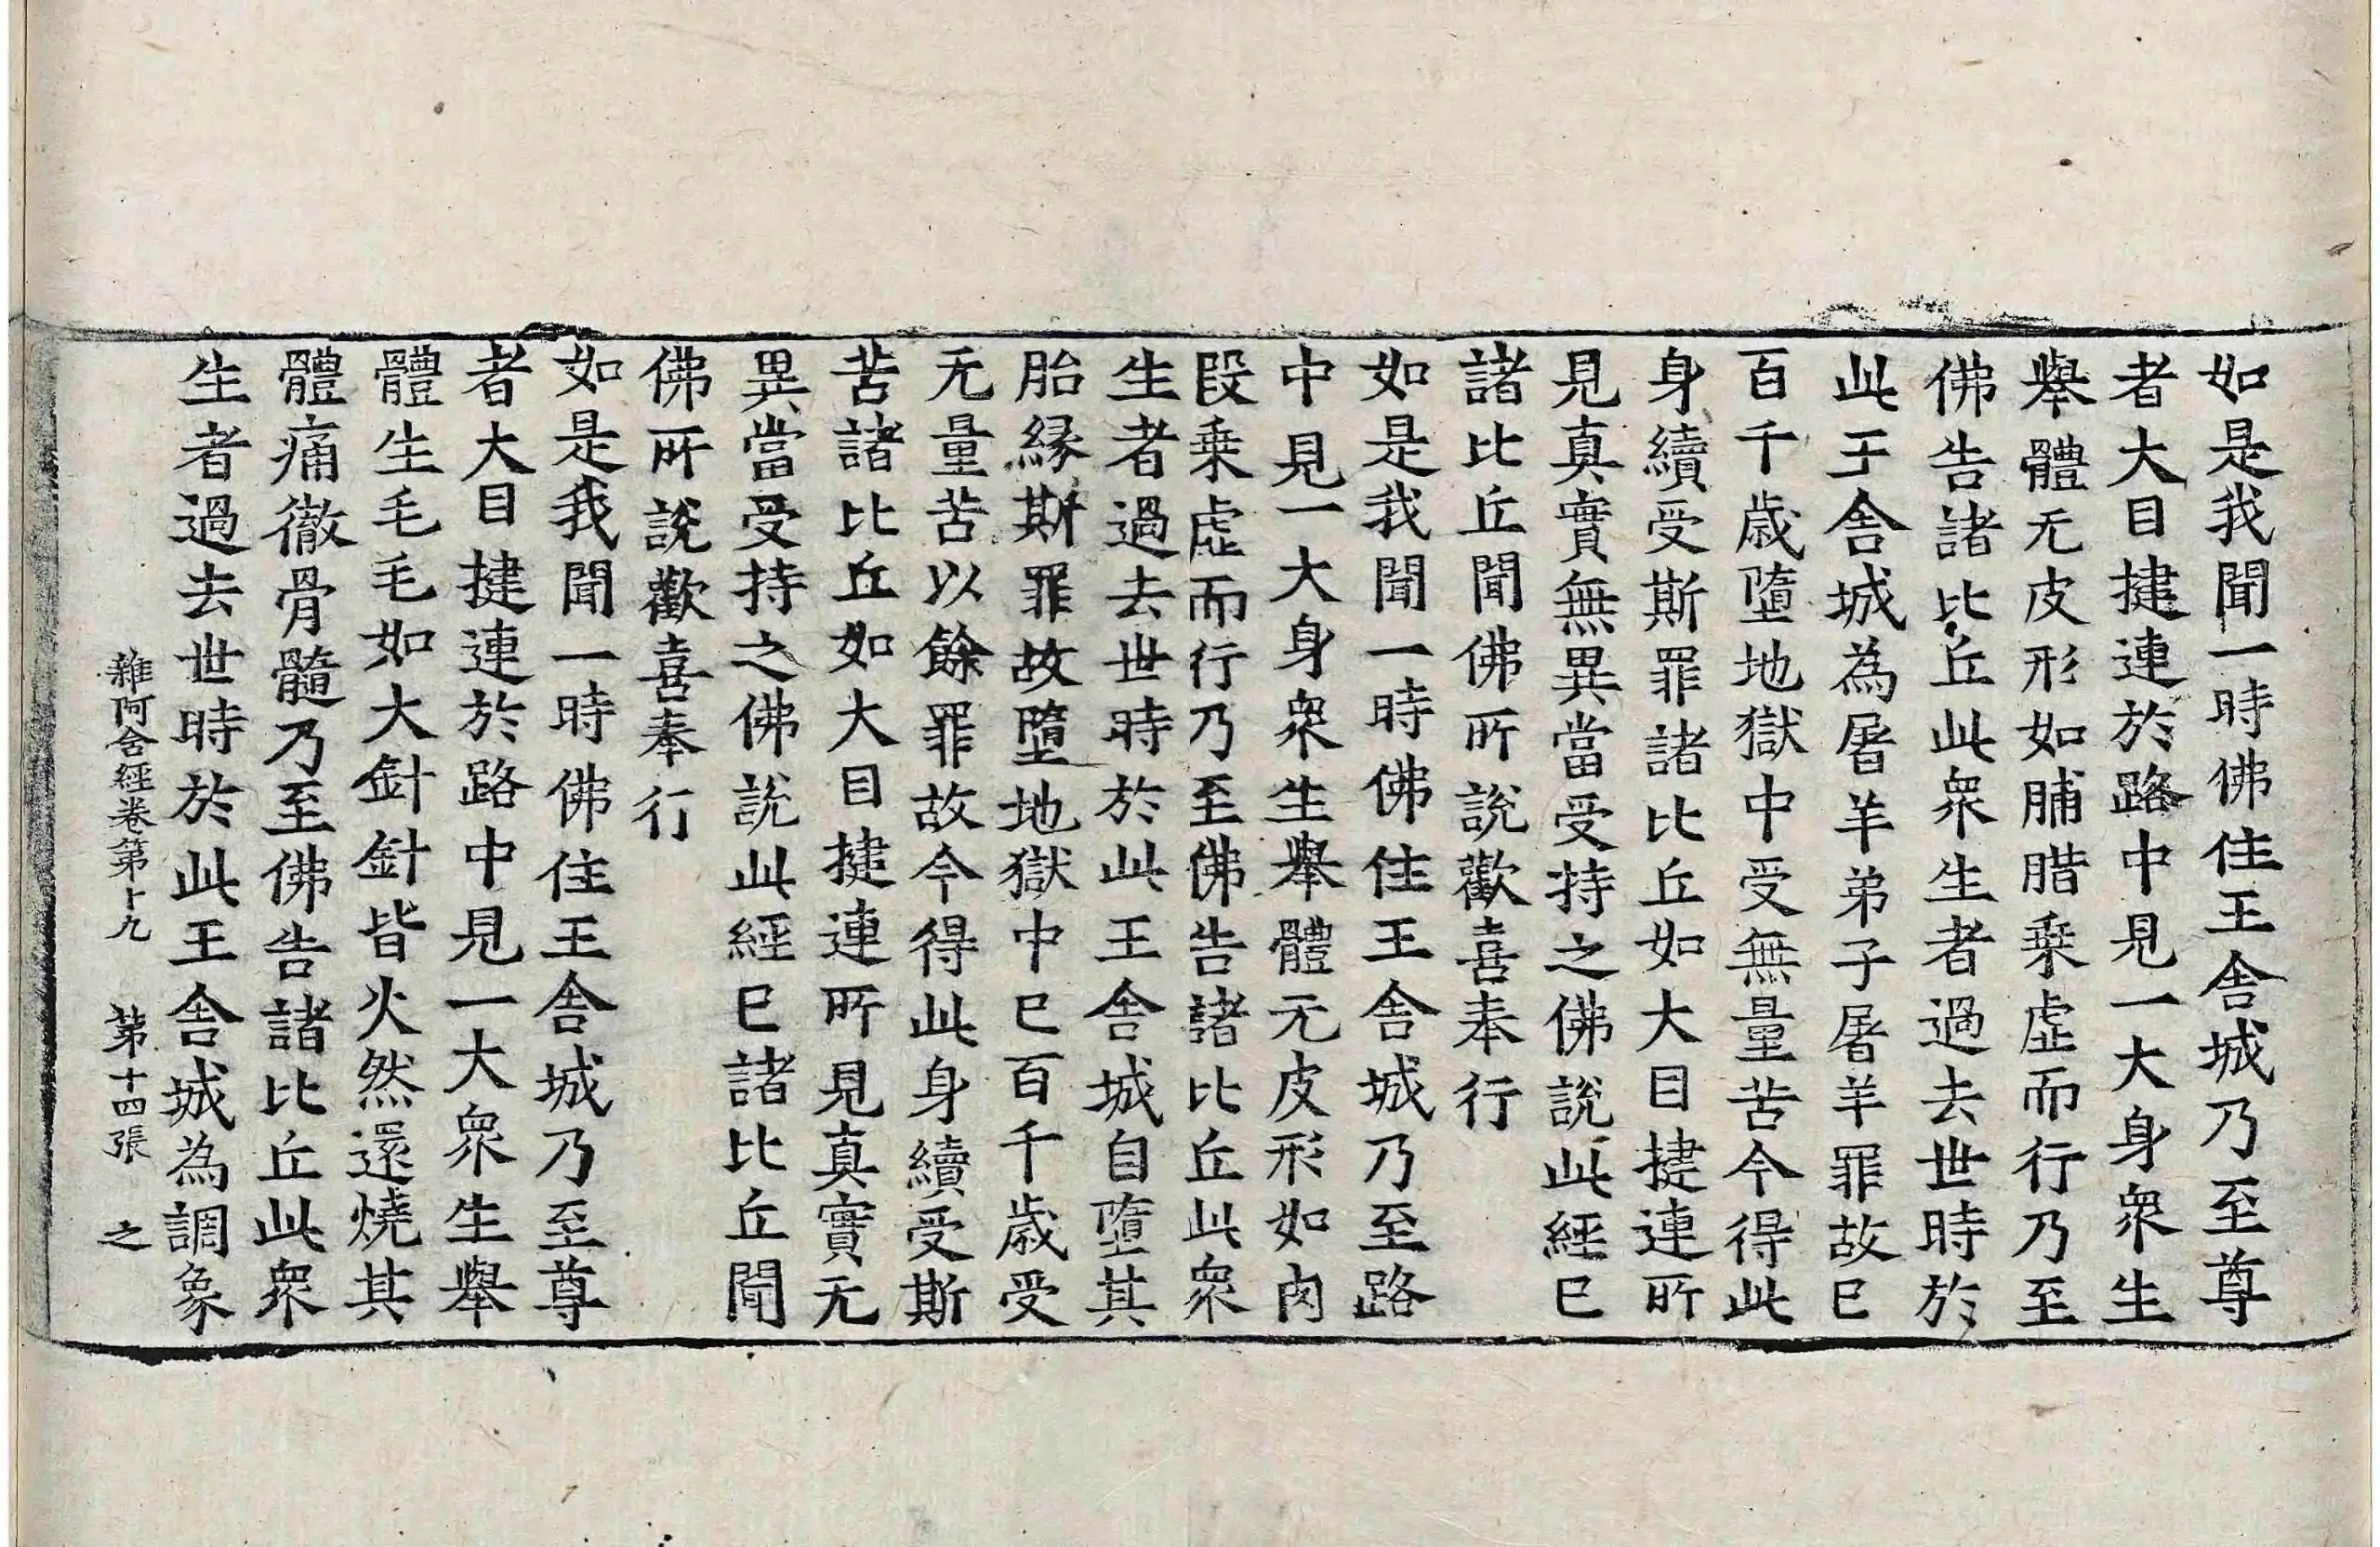 如是我聞一時佛住王舍城乃至尊
者大目揵連於路中見一大身衆生
舉體无皮形如脯腊乗虛而行乃至
佛告諸比丘此衆生者過去世時於
此王舍城為屠羊弟子屠羊罪故已
百千歲墮地獄中受無量苦今得此
身續受斯罪諸比丘如大目揵連所
見真實無異當受持之佛說此經已
諸比丘聞佛所說歡喜奉行
如是我聞一時佛住王舍城乃至路
中見一大身衆生舉體无皮形如肉
段乗虛而行乃至佛告諸比丘此衆
生者過去世時於此王舍城自墮其
胎縁斯罪故墮地獄中已百千歲受
无量苦以餘罪故今得此身續受斯
苦諸比丘如大目揵連所見真實无
異當受持之佛說此經已諸比丘聞
佛所說歡喜奉行
如是我聞一時佛住王舍城乃至尊
者大目揵連於路中見一大衆生舉
體生毛毛如大針針皆火然還燒其
體痛徹骨髓乃至佛告諸比丘此衆
生者過去世時於此王舍城為調象
雜阿含經卷第十九 第十四張 之